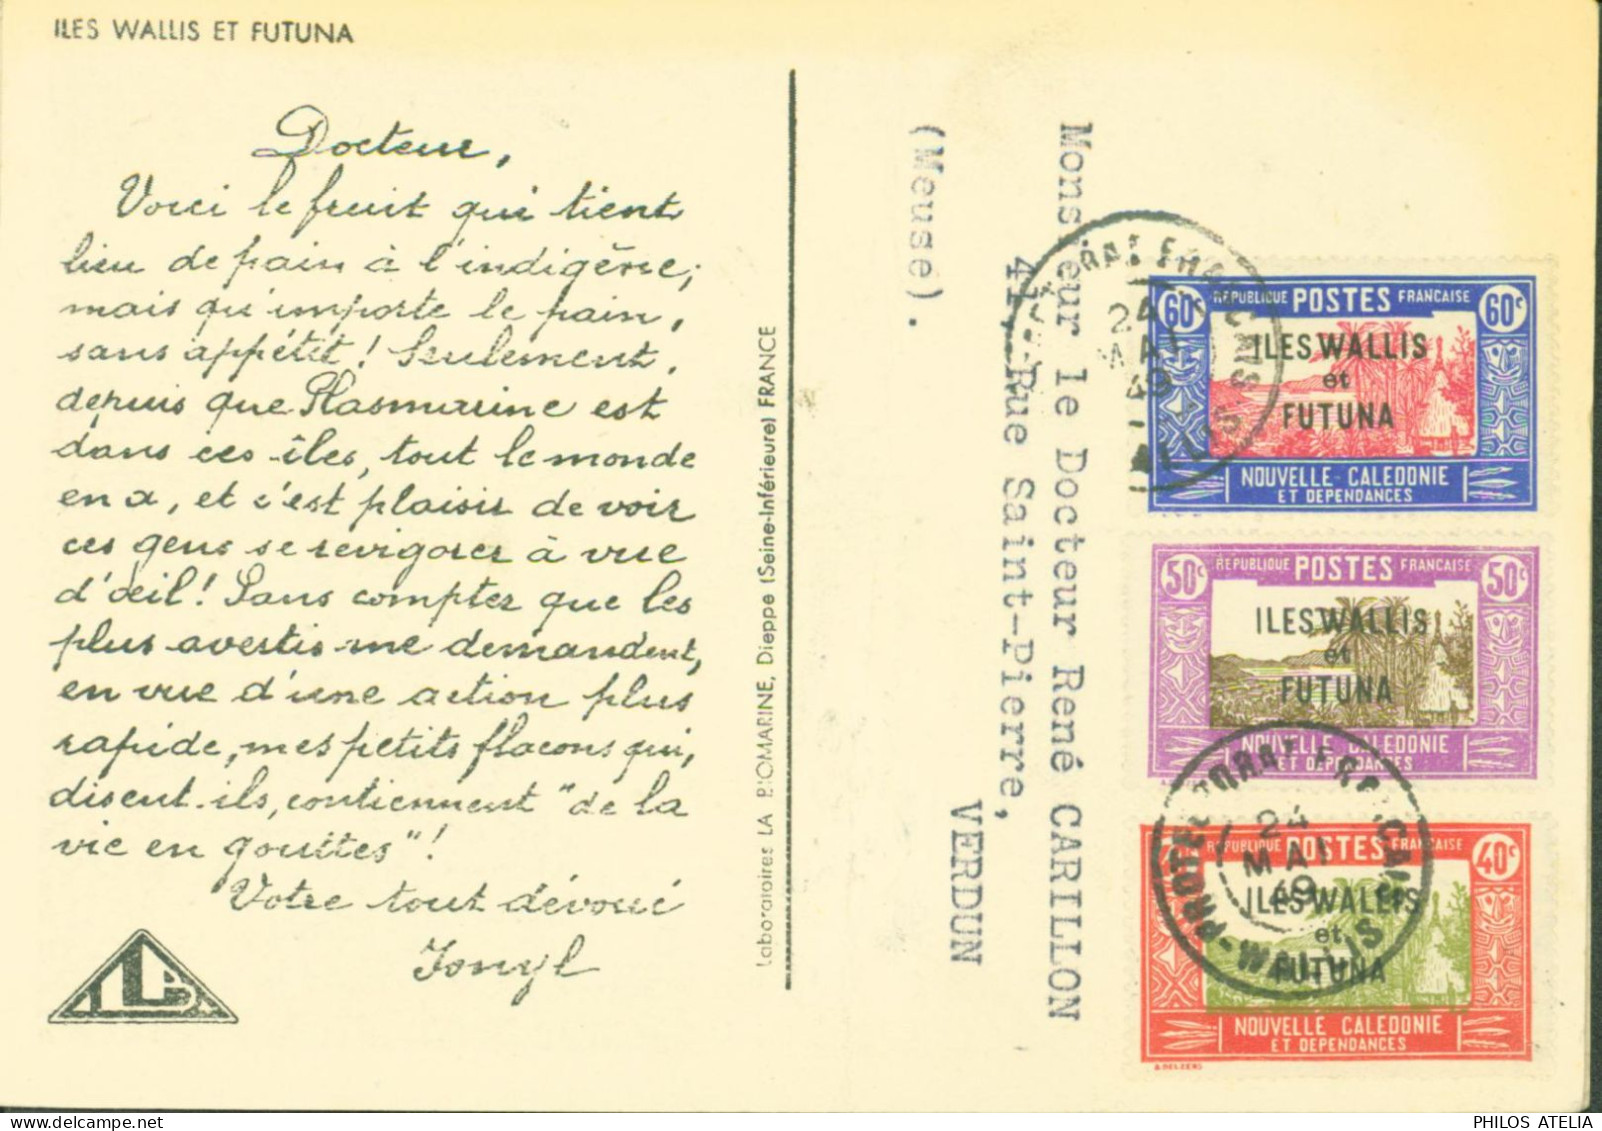 ILES WALLIS ET FUTUNA
Docteur,
Voici le fruit qui tient
lieu de pain à l'indigène;
mais qu'importe le pain,
sans appétit! Seulement,
depuis que Plasmarine est
dans ces îles, tout le monde
en a, et c'est plaisir de voir
ces gens se revigorer à vue
d'œil! Sans compter que les
plus avertis me demandent,
en vue d'une action plus
rapide, mes petits flacons qui,
disent-ils, contiennent "de la
vie en gouttes"!
Votre tout dévoué
Ionyl
LLB
Laboratoires LA BIOMARINE, Dieppe (Seine-Inférieure) FRANCE
Monsieur le Docteur René CARILLON
41, Rue Saint-Pierre,
VERDUN
(Meuse).
60c RÉPUBLIQUE POSTES FRANÇAISE 60c
ILES WALLIS
et
FUTUNA
NOUVELLE-CALÉDONIE
ET DÉPENDANCES
24
MAI
49
WALLIS
50c RÉPUBLIQUE POSTES FRANÇAISE 50c
ILES WALLIS
et
FUTUNA
NOUVELLE-CALÉDONIE
ET DÉPENDANCES
PROTECTORAT FRANÇAIS
24
MAI
49
WALLIS
RÉPUBLIQUE POSTES FRANÇAISE 40c
ILES WALLIS
et
FUTUNA
NOUVELLE CALÉDONIE
ET DÉPENDANCES
A. DELZERS
PHILOS ATELIA